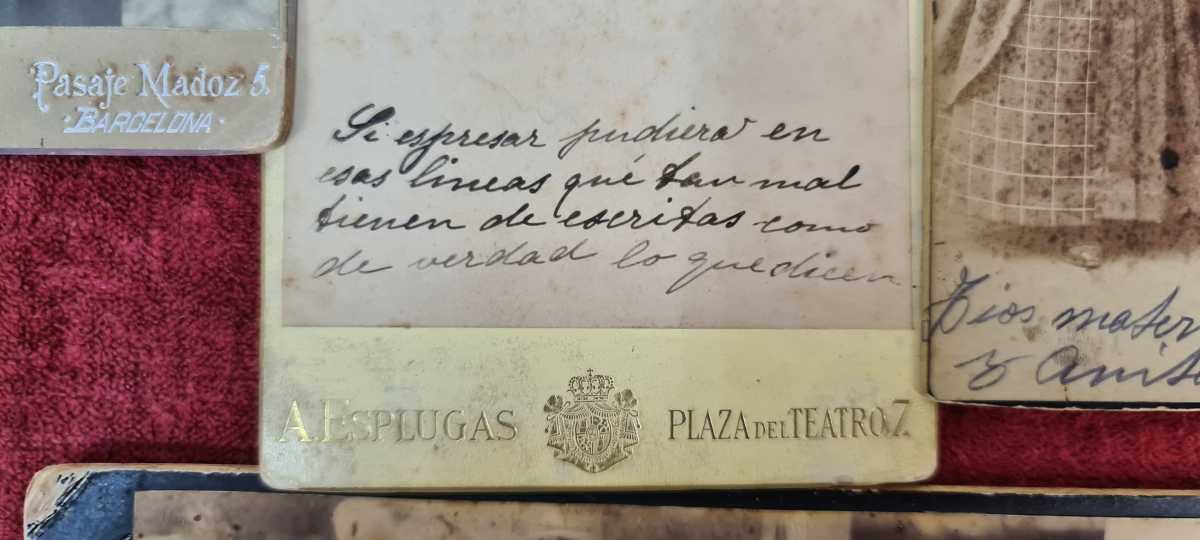 Pasaje Madoz 5.
· BARCELONA ·
Si espresar pudiera en
esas lineas qué tan mal
tienen de escritas como
de verdad lo que dicen
A. ESPLUGAS PLAZA DEL TEATRO 7
Tios mater
y Anit